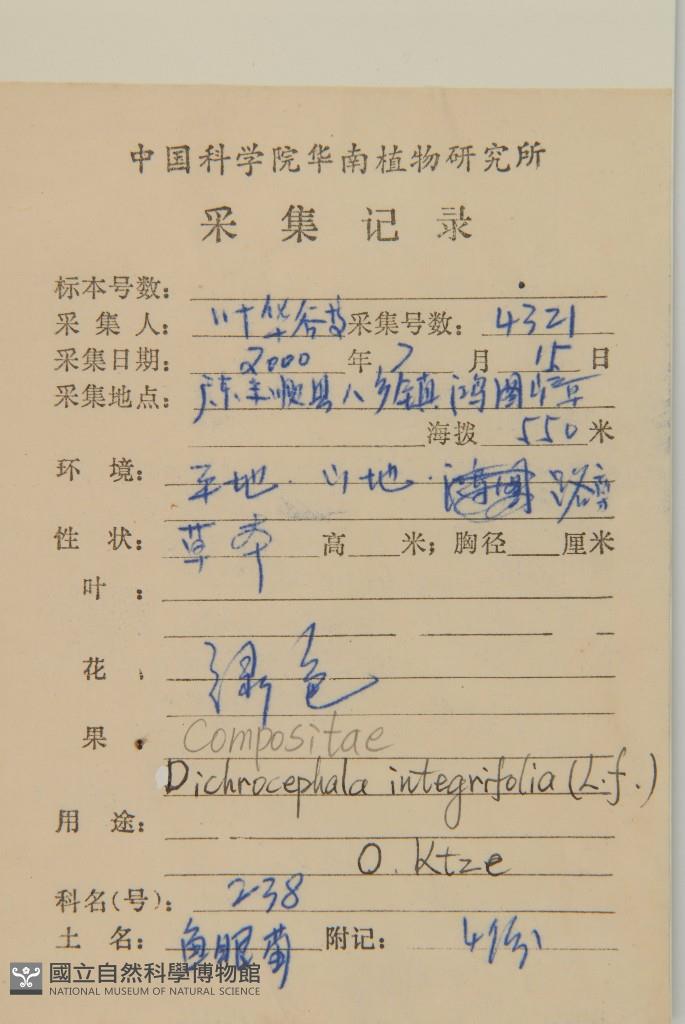 中国科学院华南植物研究所
采集记录
标本号数:
采集人: 叶华谷等 采集号数: 4321
采集日期: 2000 年 7 月 15 日
采集地点: 广东丰顺县八乡镇鸿图嶂
海拨 550 米
环境: 平地·山地· 路旁
性状: 草本 高 米; 胸径 厘米
叶:
花: 绿色
果: Compositae
Dichrocephala integrifolia (L.f.)
用途:
O. Ktze
科名(号): 238
土名: 鱼眼菊 附记: 4份
國立自然科學博物館
NATIONAL MUSEUM OF NATURAL SCIENCE